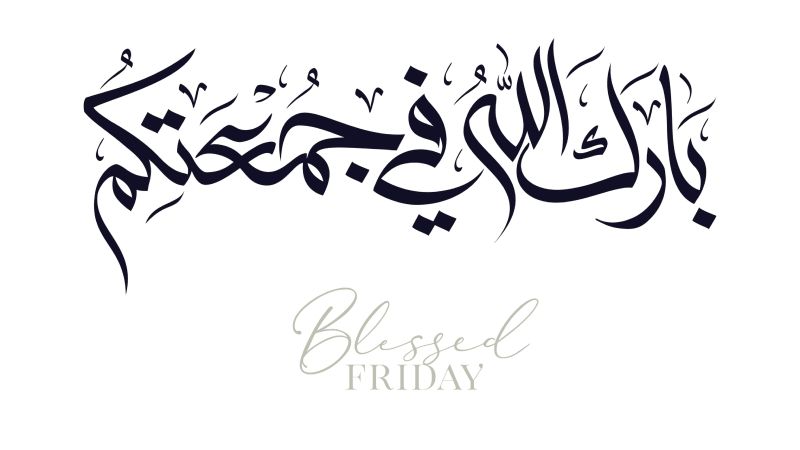 بَارَكَ اللهُ فِي جُمُعَتِكُم
Blessed
FRIDAY